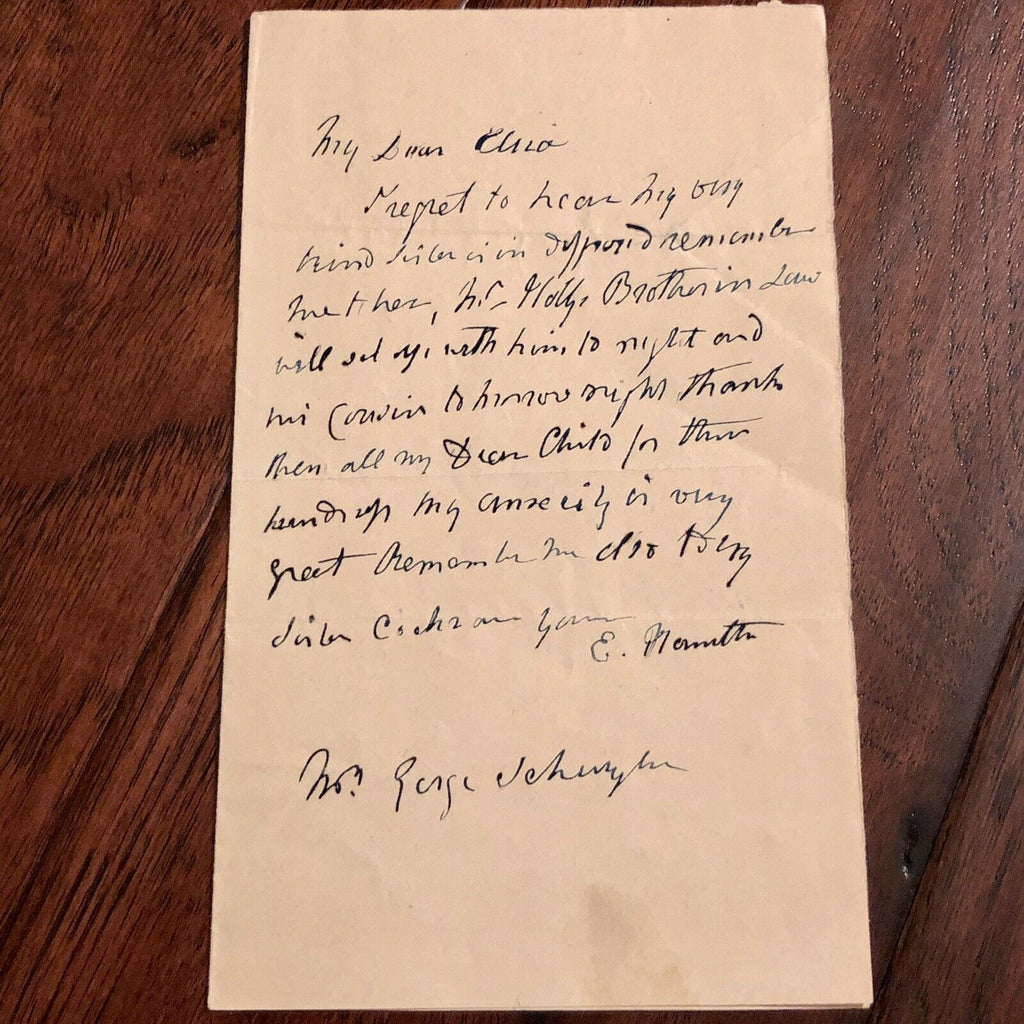 My Dear Eliza
I regret to hear my very
kind sister is in remember
me to her, Mr Brother in Law
will set up with him to night and
his Cousin to morrow night thank
them all my Dear Child for their
kindness my anxiety is very
great Remember me also to my
sister Cochran yours
E. Hamilton
Mrs George Schuyler